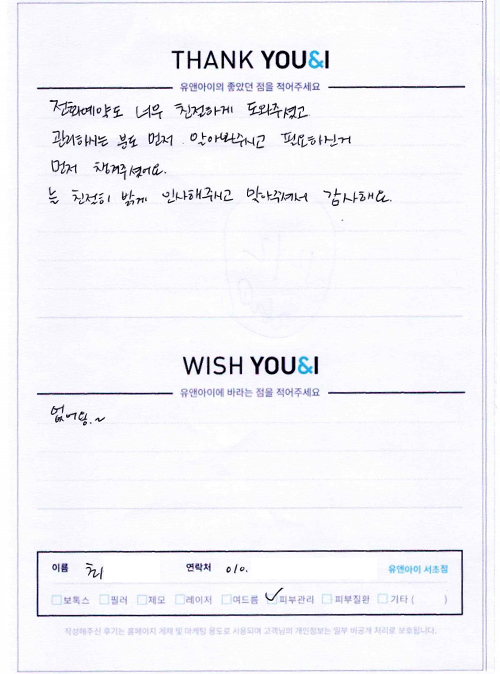 THANK YOU&I
유앤아이의 좋았던 점을 적어주세요
전화예약도 너무 친절하게 도와주셨고
관리하시는 분도 먼저 알아봐주시고 필요하신거
먼저 챙겨주셨어요.
늘 친절히 밝게 인사해주시고 맞아주셔서 감사해요.
WISH YOU&I
유앤아이에 바라는 점을 적어주세요
없어용.~
이름 최 연락처 010. 유앤아이 서초점
보톡스 필러 제모 레이저 여드름 피부관리 피부질환 기타 ( )
작성해주신 후기는 홈페이지 게재 및 마케팅 용도로 사용되며 고객님의 개인정보는 일부 비공개 처리로 보호됩니다.